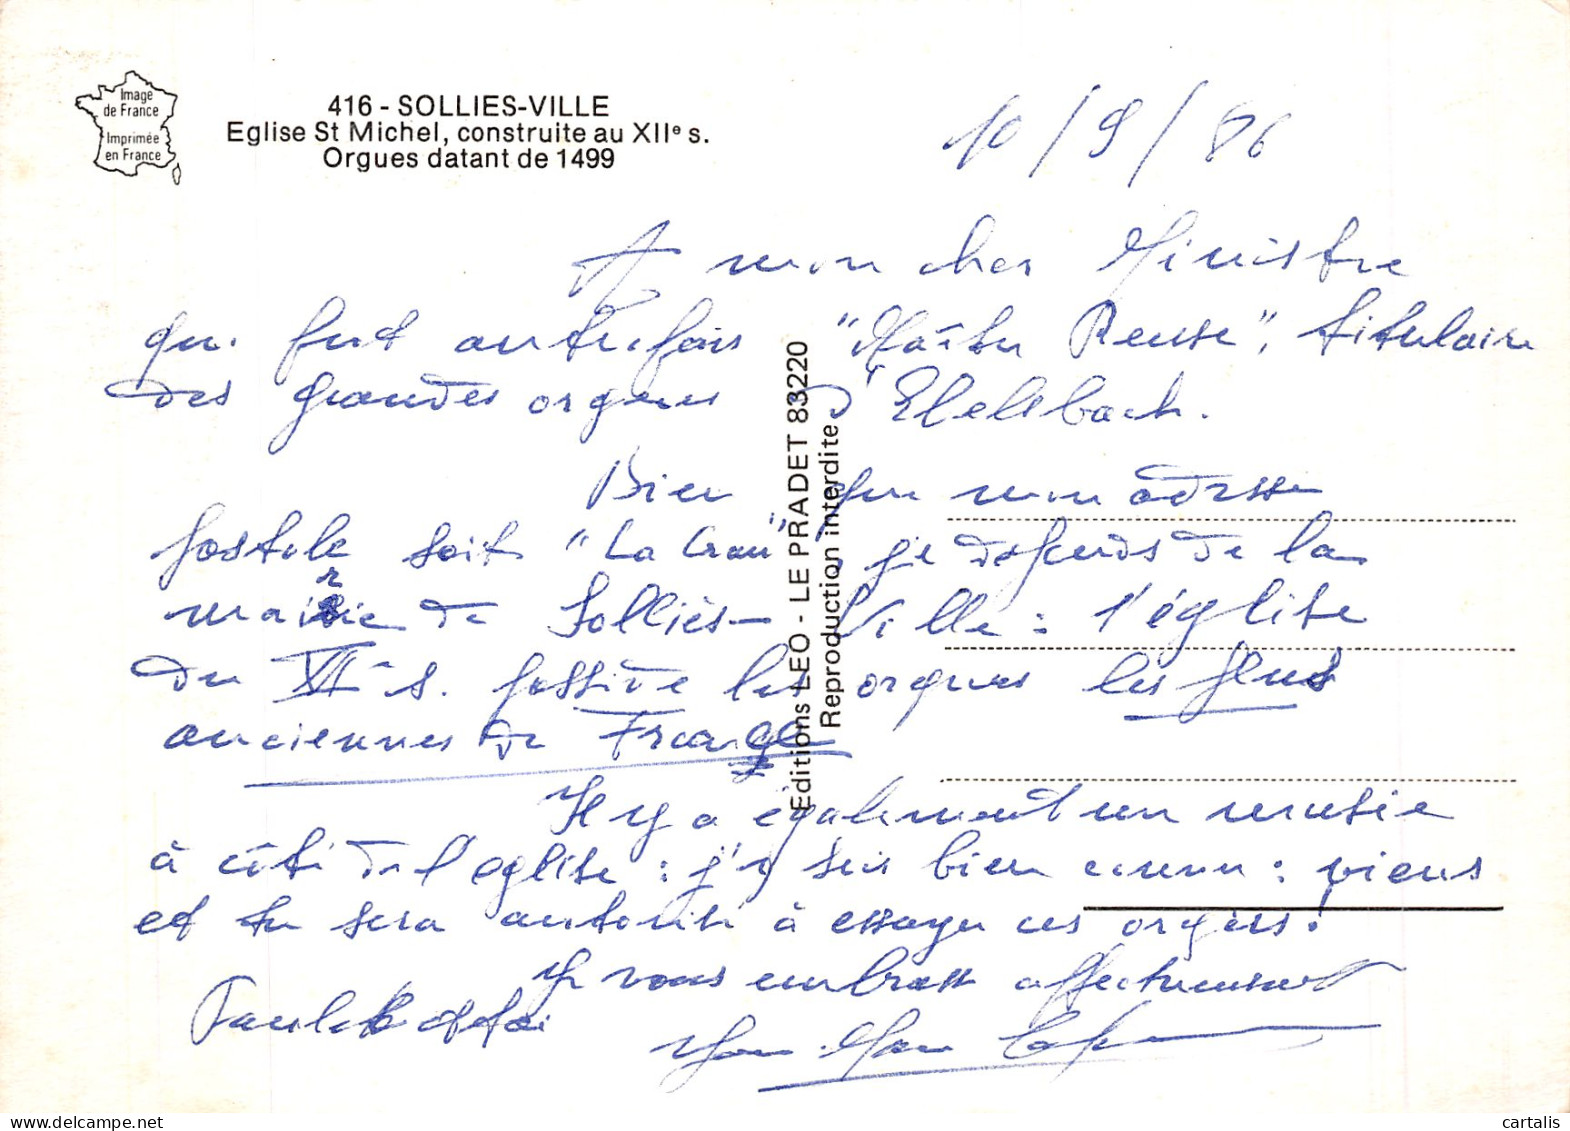 Image
de France
Imprimée
en France
416 - SOLLIES-VILLE
Eglise St Michel, construite au XIIe s.
Orgues datant de 1499
10/9/86
A mon cher Ministre
qui fut autrefois " ", titulaire
des grandes orgues d'
Bien que mon adresse
postale soit "La Crau", je dépends de la
mairie de Solliès-Ville : l'église
du XIIe s. possède les orgues les plus
anciennes de France
Il y a également un musée
à côté de l'église : j'y suis bien connu : viens
et tu sera autorisé à essayer ces orgues !
Je vous embrasse affectueusement
Editions LEO - LE PRADET 83220
Reproduction interdite
cartalis